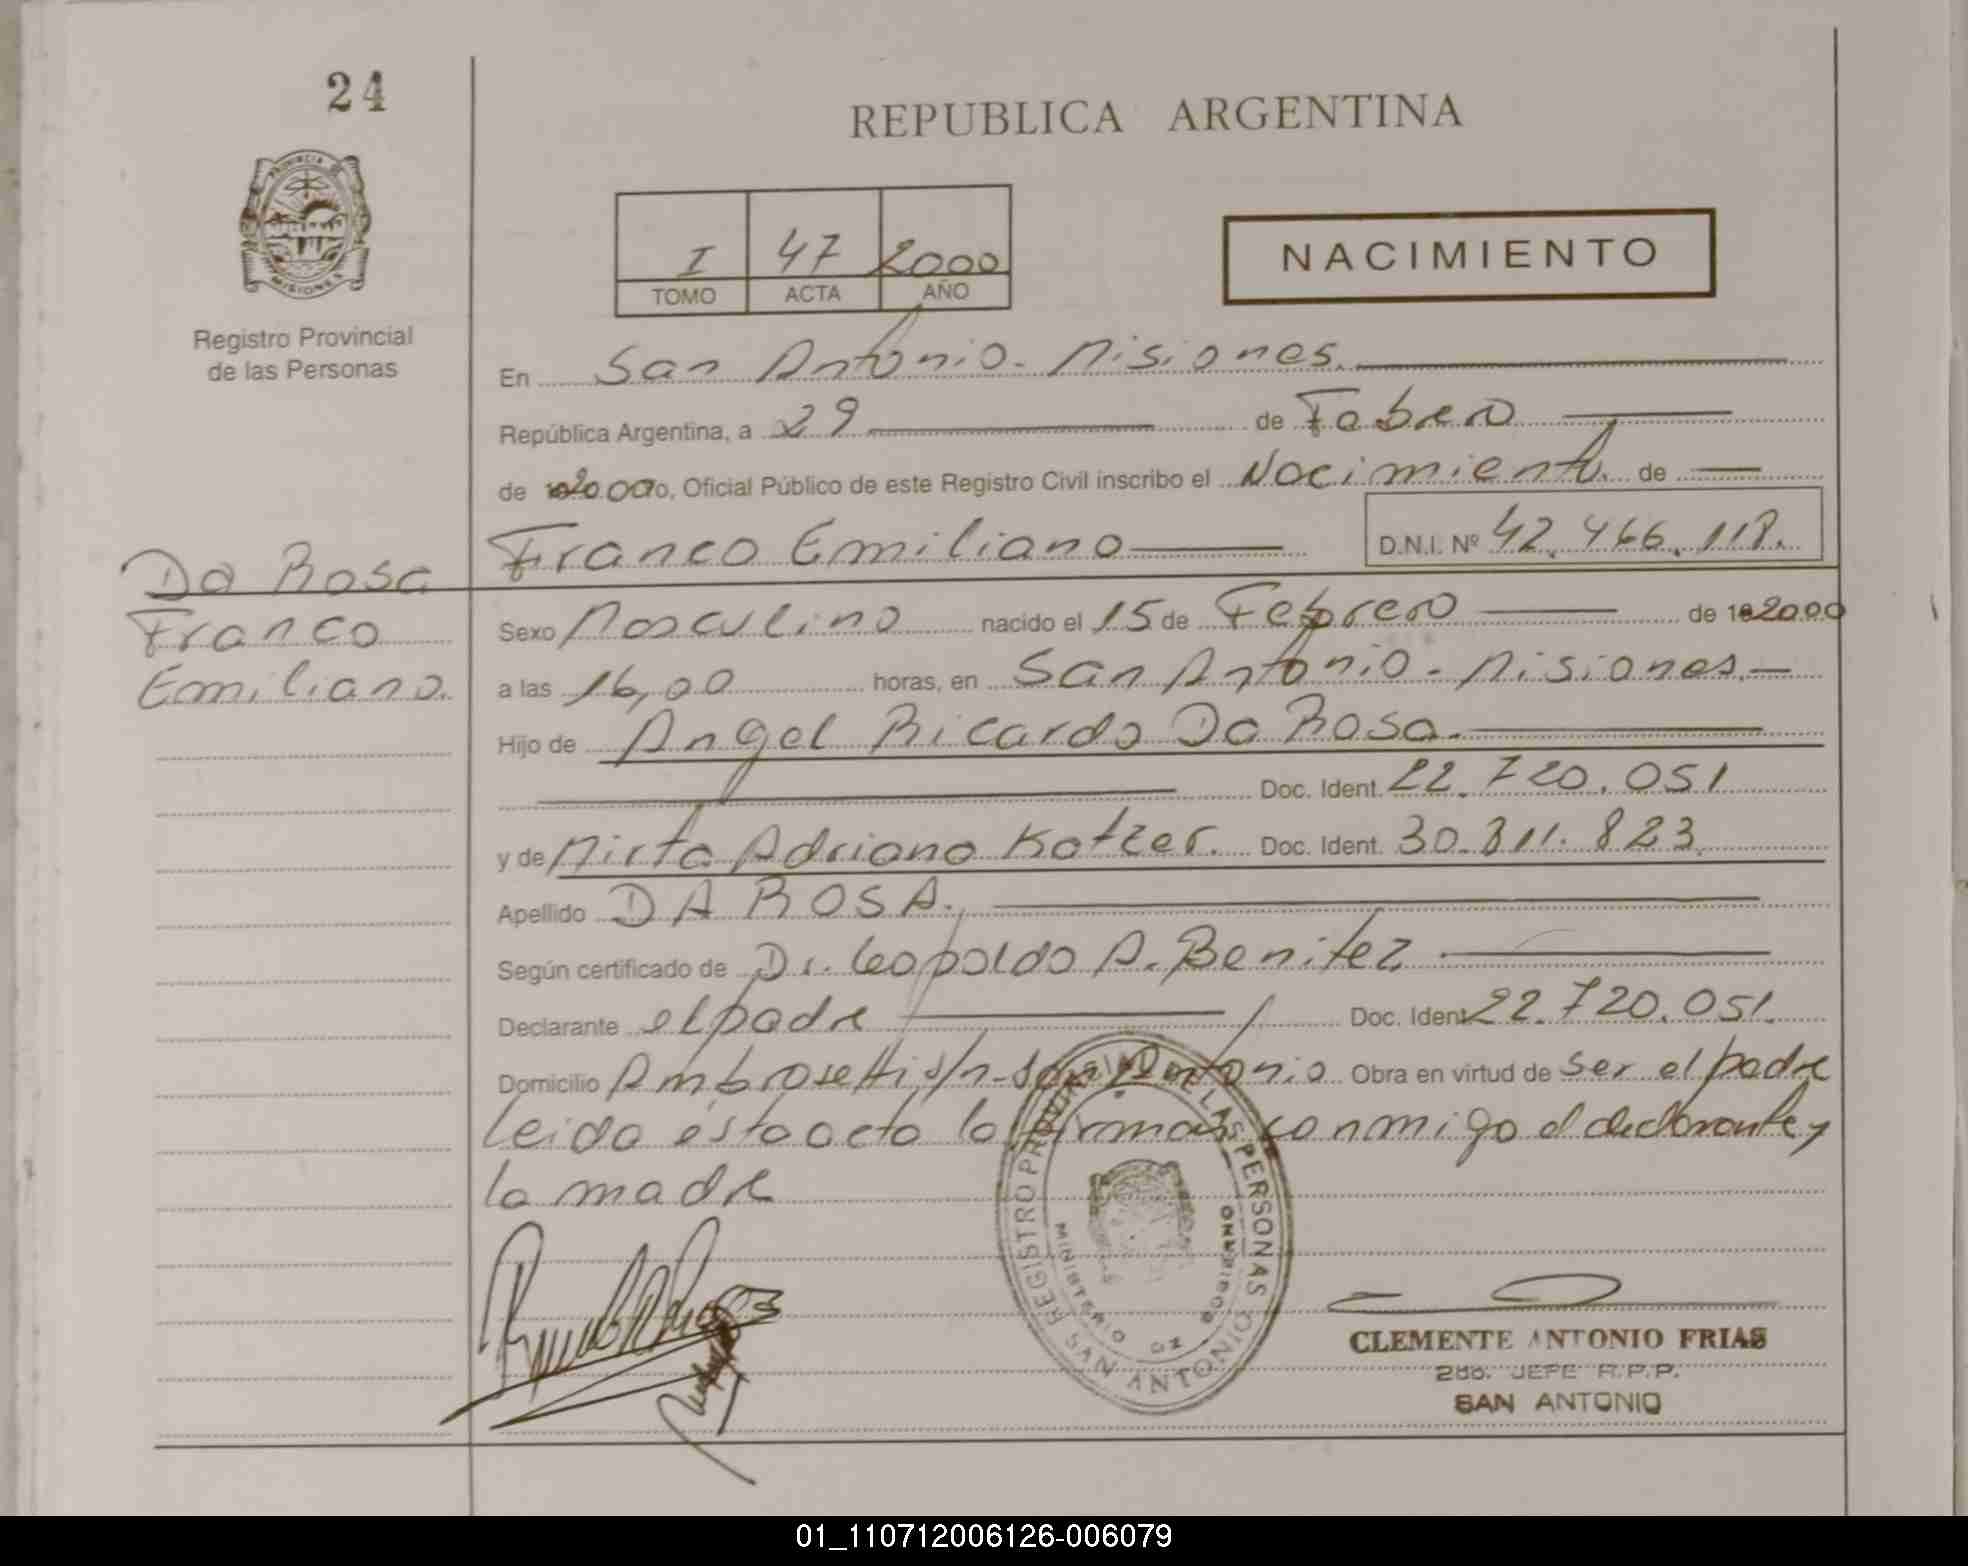 24
REPUBLICA ARGENTINA
PROVINCIA DE
MISIONES
Registro Provincial
de las Personas
I 47 2000
TOMO ACTA AÑO
NACIMIENTO
En San Antonio - Misiones.
República Argentina, a 29 de Febrero
de 2000, Oficial Público de este Registro Civil inscribo el Nacimiento de
Franco Emiliano D.N.I. Nº 42.466.118.
Da Rosa
Franco
Emiliano.
Sexo Masculino nacido el 15 de Febrero de 2000
a las 16,00 horas, en San Antonio - Misiones.
Hijo de Angel Ricardo Da Rosa.
Doc. Ident. 22.720.051
y de Mirta Adriana Kotzer. Doc. Ident. 30.811.823.
Apellido DA ROSA.
Según certificado de Dr. Leopoldo A. Benitez
Declarante el padre Doc. Ident. 22.720.051.
Domicilio Ambrosetti s/n - San Antonio Obra en virtud de ser el padre
Leida esta acta la firman conmigo el declarante y
la madre
REGISTRO PROVINCIAL DE LAS PERSONAS
MINISTERIO DE GOBIERNO
SAN ANTONIO
CLEMENTE ANTONIO FRIAS
2do. JEFE R.P.P.
SAN ANTONIO
01_110712006126-006079